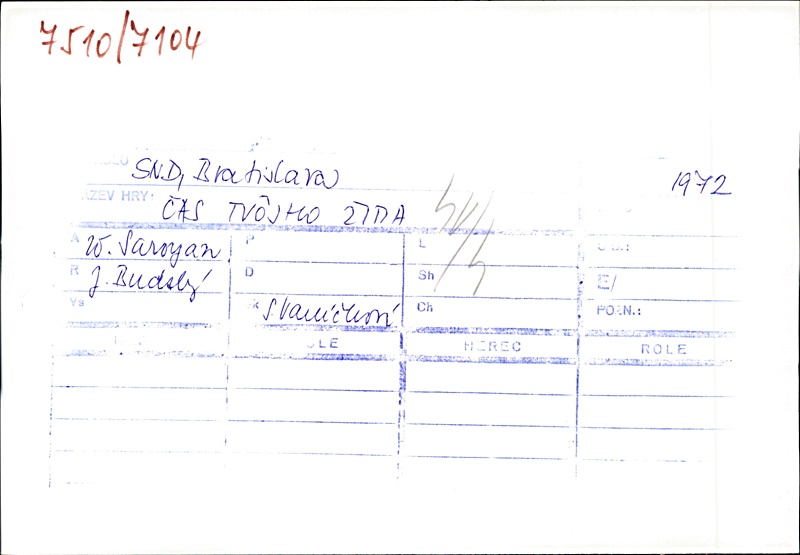 7510/7104
SND, Bratislava
1972
NÁZEV HRY:
ČAS TVÔJHO ŽITIA
A W. Saroyan P L
R J. Budský D Sh E/
Vs k Ch POZN.:
HEREC ROLE